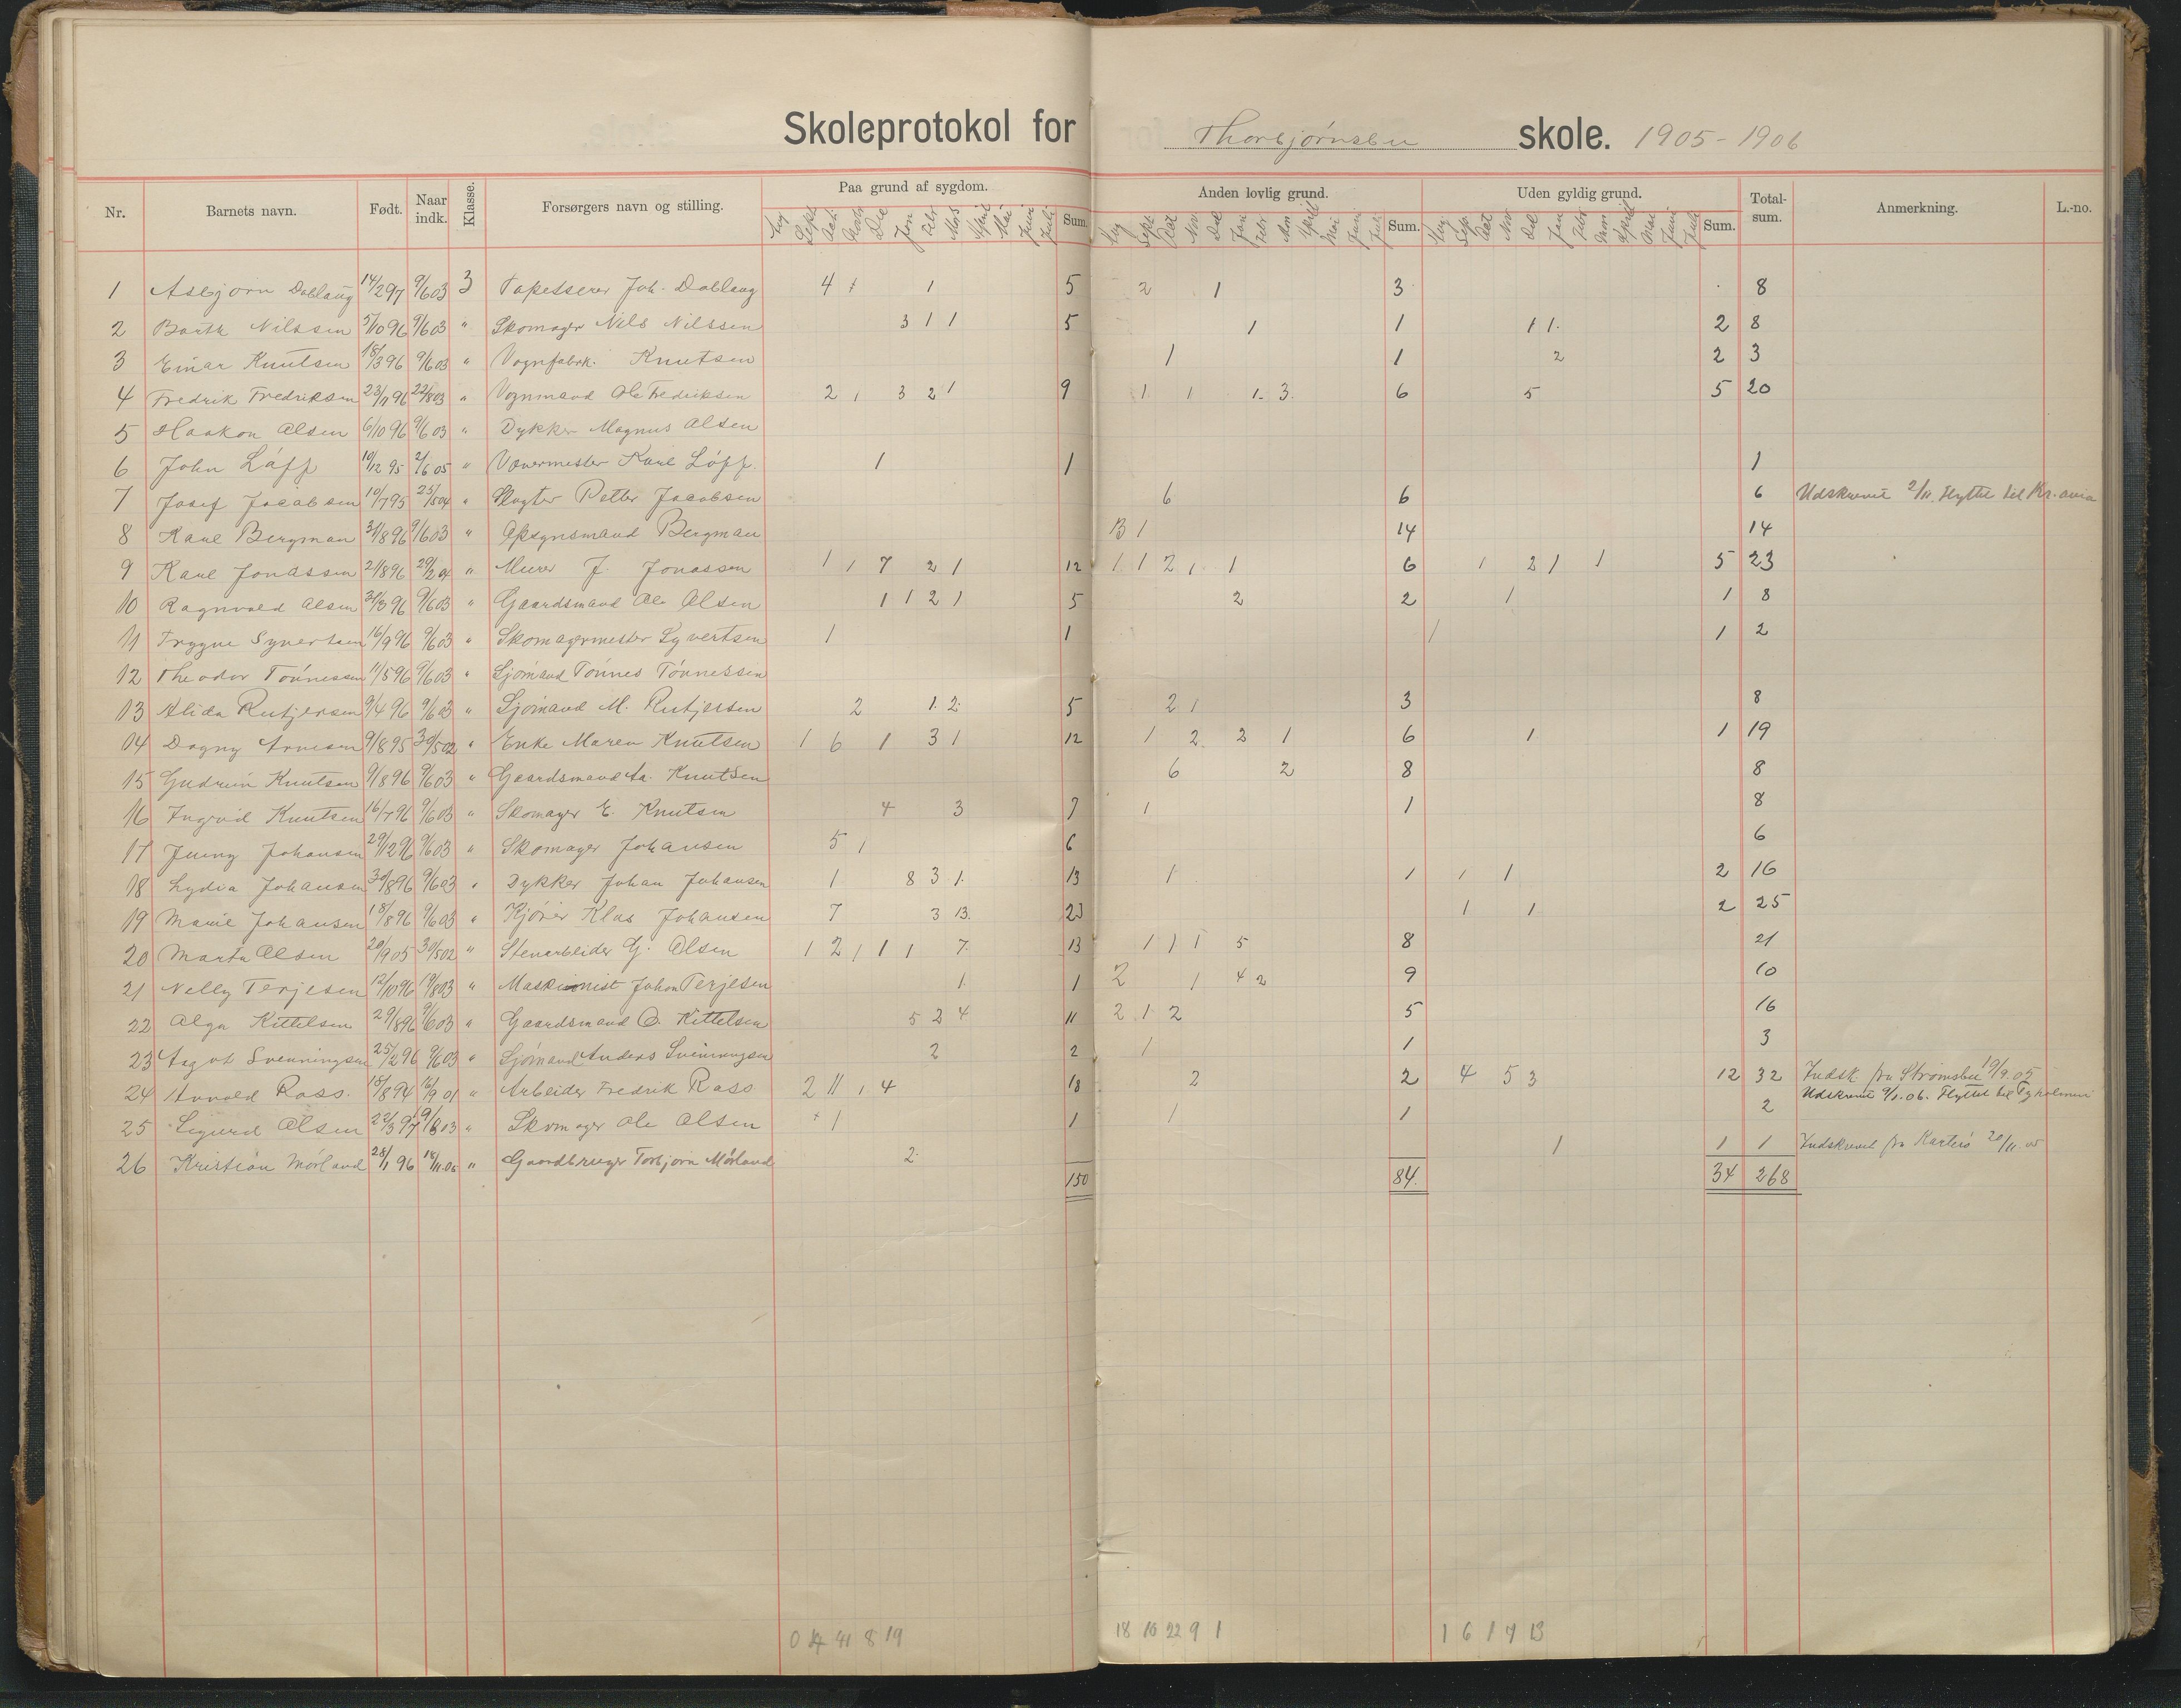 Skoleprotokol for Thorbjørnsbu skole. 1905-1906
Nr. Barnets navn. Født. Naar indk. Klasse. Forsørgers navn og stilling. Paa grund af sygdom. Sum. Anden lovlig grund. Sum. Uden gyldig grund. Sum. Total-sum. Anmerkning. L.-no.
1 Asbjørn Dablaug 14/2 97 9/6 03 3 Tapetserer Joh. Dablaug 4 1 1 5 2 1 3 8
2 Nilssen 5/10 96 9/6 03 " Skomager Nils Nilssen 3 1 1 5 1 1 1 1 2 8
3 Einar Knutsen 18/3 96 9/6 03 " Vognfabrk. Knutsen 1 1 2 2 3
4 Fredrik Fredriksen 23/11 96 22/8 03 " Vognmand Ole Fredriksen 2 1 3 2 1 9 1 1 1 3 6 5 5 20
5 Haakon Olsen 6/10 96 9/6 03 " Dykker Magnus Olsen
6 John Løff 10/12 95 2/6 05 " Karl Løff 1 1 1
7 Josef Jacobsen 10/7 95 25/5 04 " Slagter Petter Jacobsen 6 6 6 Udskrevet 2/11. Flyttet til Kr.ania
8 Karl Bergman 31/8 96 9/6 03 " Opsynsmand Bergman 13 1 14 14
9 Karl Jonassen 2/8 96 29/2 04 " Murer J. Jonassen 1 1 7 2 1 12 1 1 2 1 1 6 1 2 1 1 5 23
10 Ragnvald Olsen 31/3 96 9/6 03 " Gaardsmand Ole Olsen 1 1 2 1 5 2 2 1 1 8
11 Trygve Syvertsen 16/9 96 9/6 03 " Skomagermester Syvertsen 1 1 1 1 2
12 Theodor Tønnessen 11/5 96 9/6 03 " Sjømand Tønnes Tønnessen
13 Alida Rutjersen 9/4 96 9/6 03 " Sjømand M. Rutjersen 2 1 2 5 2 1 3 8
14 Dagny Arnesen 9/8 95 30/5 02 " Enke Maren Knutsen 1 6 1 3 1 12 1 2 2 1 6 1 1 19
15 Gudrun Knutsen 9/8 96 9/6 03 " Gaardsmand Aa. Knutsen 6 2 8 8
16 Ingrid Knutsen 16/7 96 9/6 03 " Skomager E. Knutsen 4 3 7 1 1 8
17 Jenny Johansen 29/12 96 9/6 03 " Skomager Johansen 5 1 6 6
18 Lydia Johansen 30/8 96 9/6 03 " Dykker Johan Johansen 1 8 3 1 13 1 1 1 1 2 16
19 Marie Johansen 18/8 96 9/6 03 " Kjører Klas Johansen 7 3 13 23 1 1 2 25
20 Marta Olsen 20/9 05 30/5 02 " Stenarbeider G. Olsen 1 2 1 1 1 7 13 1 1 1 5 8 21
21 Nelly Terjesen 12/10 96 19/8 03 " Maskinist Johan Terjesen 1 1 2 1 4 2 9 10
22 Olga Kittelsen 29/8 96 9/6 03 " Gaardsmand O. Kittelsen 5 2 4 11 2 1 2 5 16
23 Aagot Svenningsen 25/2 96 9/6 03 " Sjømand Anders Svenningsen 2 2 1 1 3
24 Arnold Rass. 18/8 94 16/9 01 " Arbeider Fredrik Rass 2 11 1 4 18 2 2 4 5 3 12 32 Indsk fra Strømsbu 19/9.05
25 Sigurd Olsen 22/3 97 9/6 03 " Skomager Ole Olsen 1 1 1 1 2 Udskrevet 9/1.06. Flyttet til Tyholmen
26 Kristian Mørland 28/1 96 18/11.05 " Gaardbruger Torbjørn Mørland 2 1 1 1 Indskrevet fra 20/11.05
150 84. 34 268
0 24 41 8 19 18 16 22 9 1 1 6 1 7 13